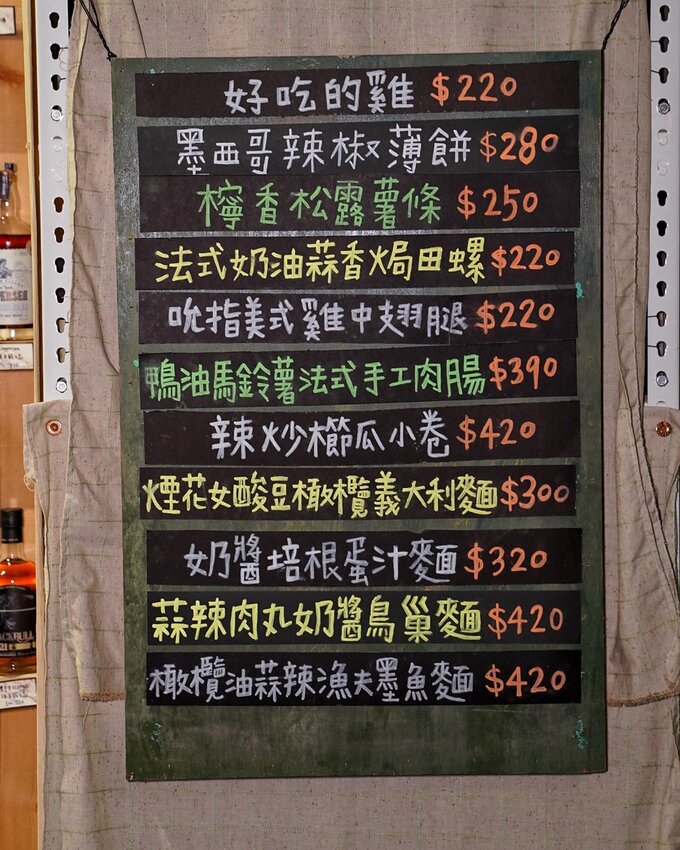 好吃的雞 $220
墨西哥辣椒薄餅 $280
檸香松露薯條 $250
法式奶油蒜香焗田螺 $220
吮指美式雞中翅腿 $220
鴨油馬鈴薯法式手工肉腸 $390
辣炒櫛瓜小卷 $420
煙花女酸豆橄欖義大利麵 $300
奶醬培根蛋汁麵 $320
蒜辣肉丸奶醬鳥巢麵 $420
橄欖油蒜辣漁夫墨魚麵 $420